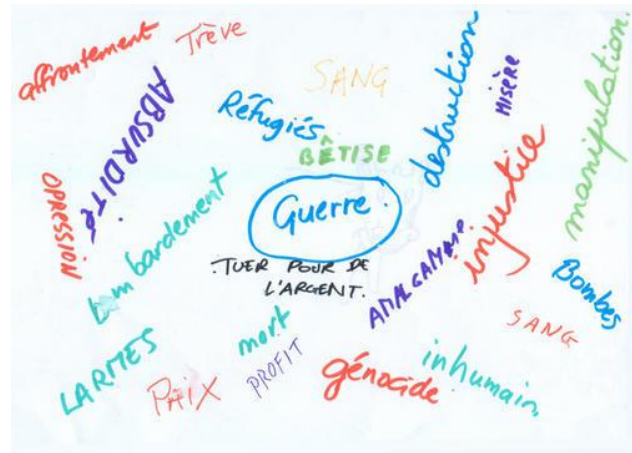 affrontement
Trève
SANG
destruction
MISÈRE
manipulation.
ABSURDITÉ
Réfugiés
BÊTISE
injustice
OPRESSION
bombardement
Guerre
.TUER POUR DE
L'ARGENT.
AMALGAMME
Bombes
SANG
LARMES
PAIX
mort
PROFIT
génocide
inhumain.